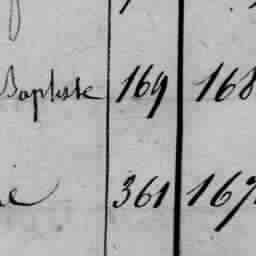 Baptiste 169 168
361 167